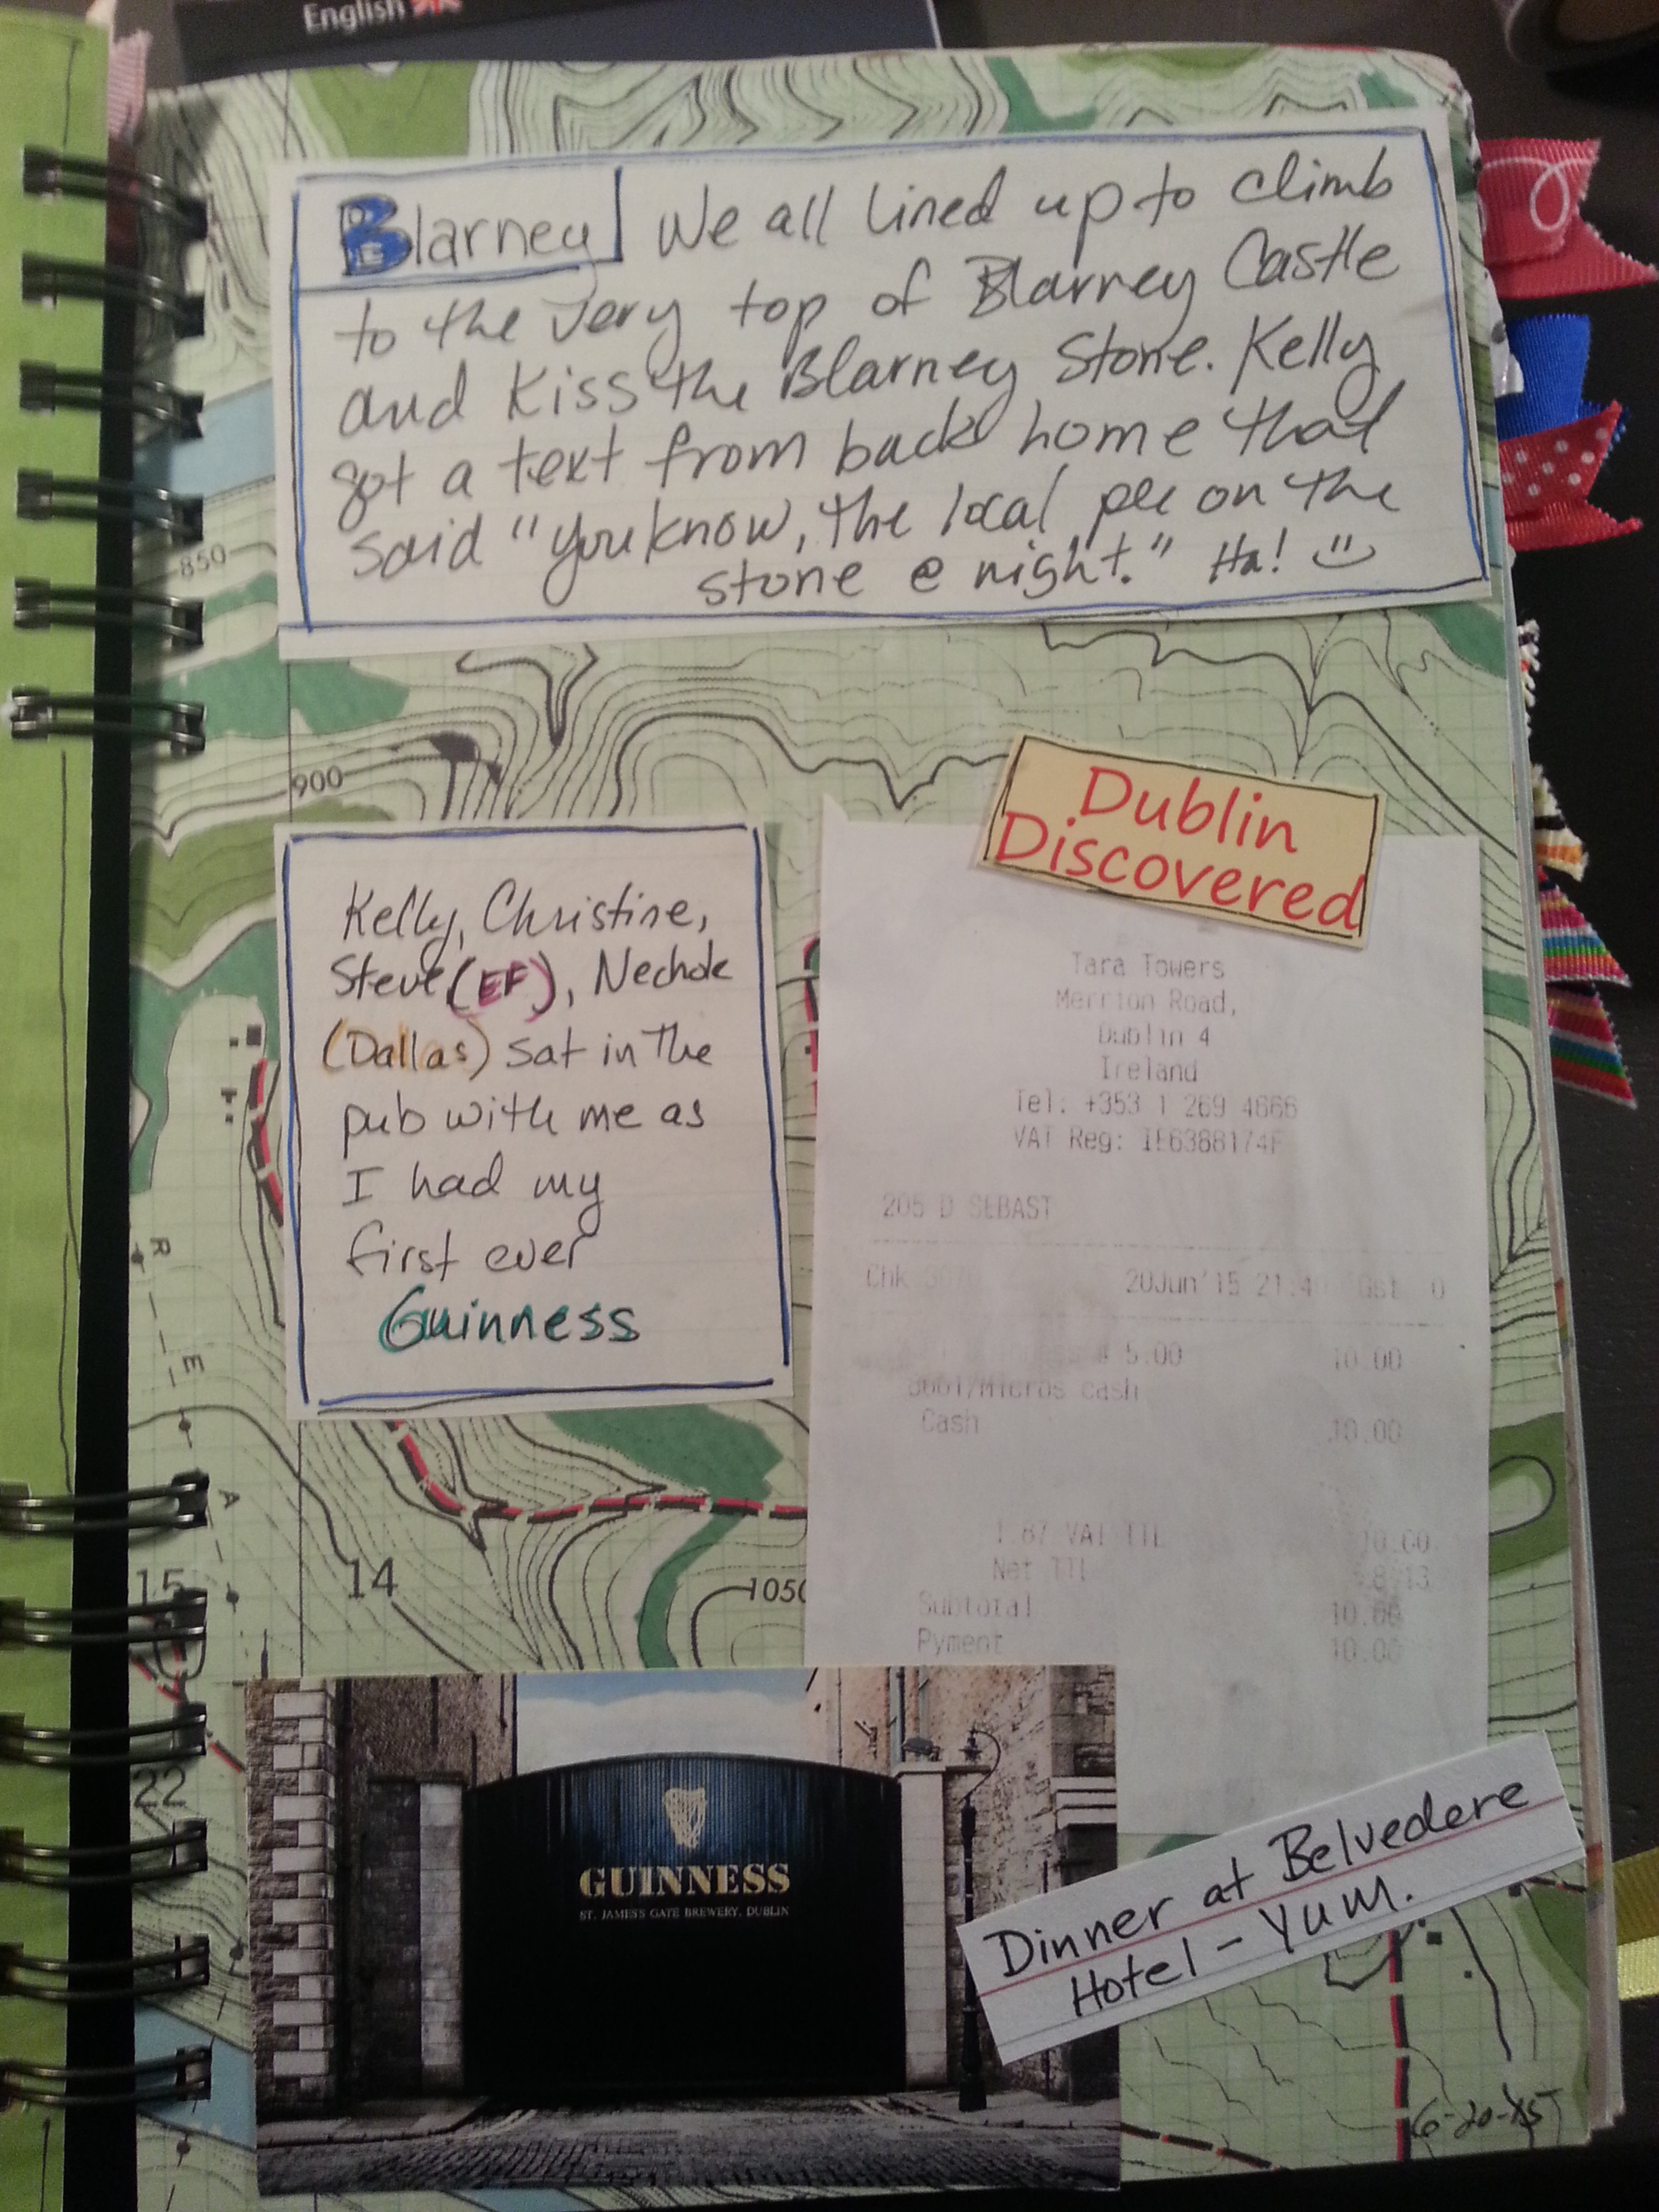 English
Blarney We all lined up to climb
to the very top of Blarney Castle
and Kiss the Blarney Stone. Kelly
got a text from back home that
said "you know, the local pee on the
stone @ night." Ha!
850
900
Dublin
Discovered
Kelly, Christine,
Steve (EF), Nechole
(Dallas) sat in the
pub with me as
I had my
first ever
Guinness
Tara Towers
Merrion Road,
Dublin 4
Ireland
Tel: +353 1 269 4666
VAT Reg: IE6388174F
205 D SEBAST
Chk 20Jun'15 21:4
5.00 10.00
Cash
Cash 10.00
1.87 VAT TTL 10.00
Net TTL 8.13
Subtotal 10.00
Pyment 10.00
R
E
A
15
14
1050
22
GUINNESS
ST. JAMES'S GATE BREWERY. DUBLIN
Dinner at Belvedere
Hotel - Yum.
6-20-15